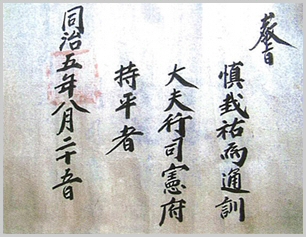 敎旨
慎哉祐為通訓
大夫行司憲府
持平者
同治五年八月二十五日